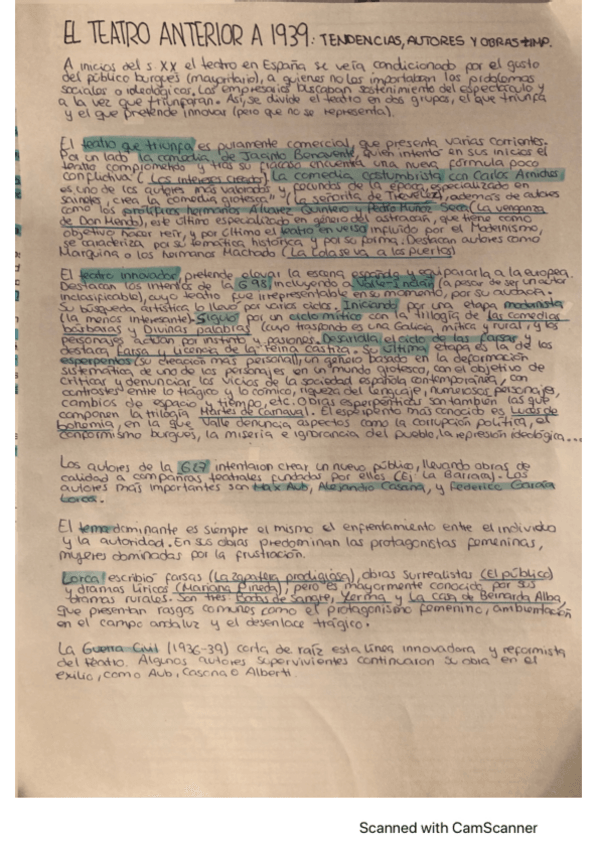 EL TEATRO ANTERIOR A 1939: TENDENCIAS, AUTORES Y OBRAS +IMP.
A inicios del s XX el teatro en España se vería condicionado por el gusto
del público burgués (mayoritario), a quienes no les importaban los problemas
sociales o ideológicos. Los empresarios buscaban sostenimiento del espectáculo y
a la vez que triunfaran. Así, se divide el teatro en dos grupos, el que triunfa
y el que pretende innovar (pero que no se representa).
El teatro que triunfa es puramente comercial, que presenta varias corrientes.
Por un lado la comedia, de Jacinto Benavente, quien intentó en sus inicios el
teatro comprometido y tras su fracaso encuentra una nueva fórmula poco
conflictiva (Los intereses creados). La comedia costumbrista con Carlos Arniches
es uno de los autores más valorados y fecundos de la época, especializado en
sainetes, crea la comedia grotesca" (La señorita de Trevélez), además de autores
como los prolíficos hermanos Álvarez Quintero y Pedro Muñoz Seca (La venganza
de Don Mendo), este último especializado en género del astracán, que tiene como
objetivo hacer reír, y por último el teatro en verso influido por el Modernismo,
se caracteriza por su temática histórica y por su forma. Destacan autores como
Marquina o los hermanos Machado (La Lola se va a los puertos)
El teatro innovador, pretende elevar la escena española y equipararla a la europea.
Destacan los intentos de la G98 incluyendo a Valle-Inclán (a pesar de ser un autor
inclasificable), cuyo teatro fue irrepresentable en su momento, por su audacia.
Su búsqueda artística lo llevó por varios ciclos. Iniciando por una etapa modernista
(la menos interesante). Siguió por un ciclo mítico con la trilogía de las comedias
bárbaras y Divinas palabras (cuyo trasfondo es una Galicia, mítica y rural, y los
personajes actúan por instinto y pasiones. Desarrolla el ciclo de las farsas,
destaca Farsa y Licencia de la reina castiza. Su última etapa es la de los
esperpentos (su creación más personal), un género basado en la deformación
sistemática de uno de los personajes en un mundo grotesco, con el objetivo de
criticar y denunciar los vicios de la sociedad española contemporánea, con
contrastes entre lo trágico y lo cómico, riqueza del lenguaje, numerosos personajes,
cambios de espacio y tiempo, etc. Obras esperpénticas son también las que
componen la trilogía Martes de Carnaval. El esperpento más conocido es Luces de
bohemia, en la que Valle denuncia aspectos como la corrupción política, el
conformismo burgués, la miseria e ignorancia del pueblo, la represión ideológica...
Los autores de la G27 intentaron crear un nuevo público, llevando obras de
calidad a compañías teatrales fundadas por ellos (Ej La Barraca). Los
autores más importantes son Max Aub, Alejandro Casona, y Federico García
Lorca.
El tema dominante es siempre el mismo el enfrentamiento entre el individuo
y la autoridad. En sus obras predominan las protagonistas femeninas,
mujeres dominadas por la frustración.
Lorca escribió farsas (La zapatera prodigiosa), obras surrealistas (El público)
y dramas líricos (Mariana Pineda), pero es mayormente conocido por sus
dramas rurales. Son tres Bodas de sangre, Yerma y La casa de Bernarda Alba,
que presentan rasgos comunes como el protagonismo femenino, ambientación
en el campo andaluz y el desenlace trágico.
La Guerra Civil (1936-39) corta de raíz esta línea innovadora y reformista
del teatro. Algunos autores supervivientes continuaron su obra en el
exilio, como Aub, Casona o Alberti
Scanned with CamScanner